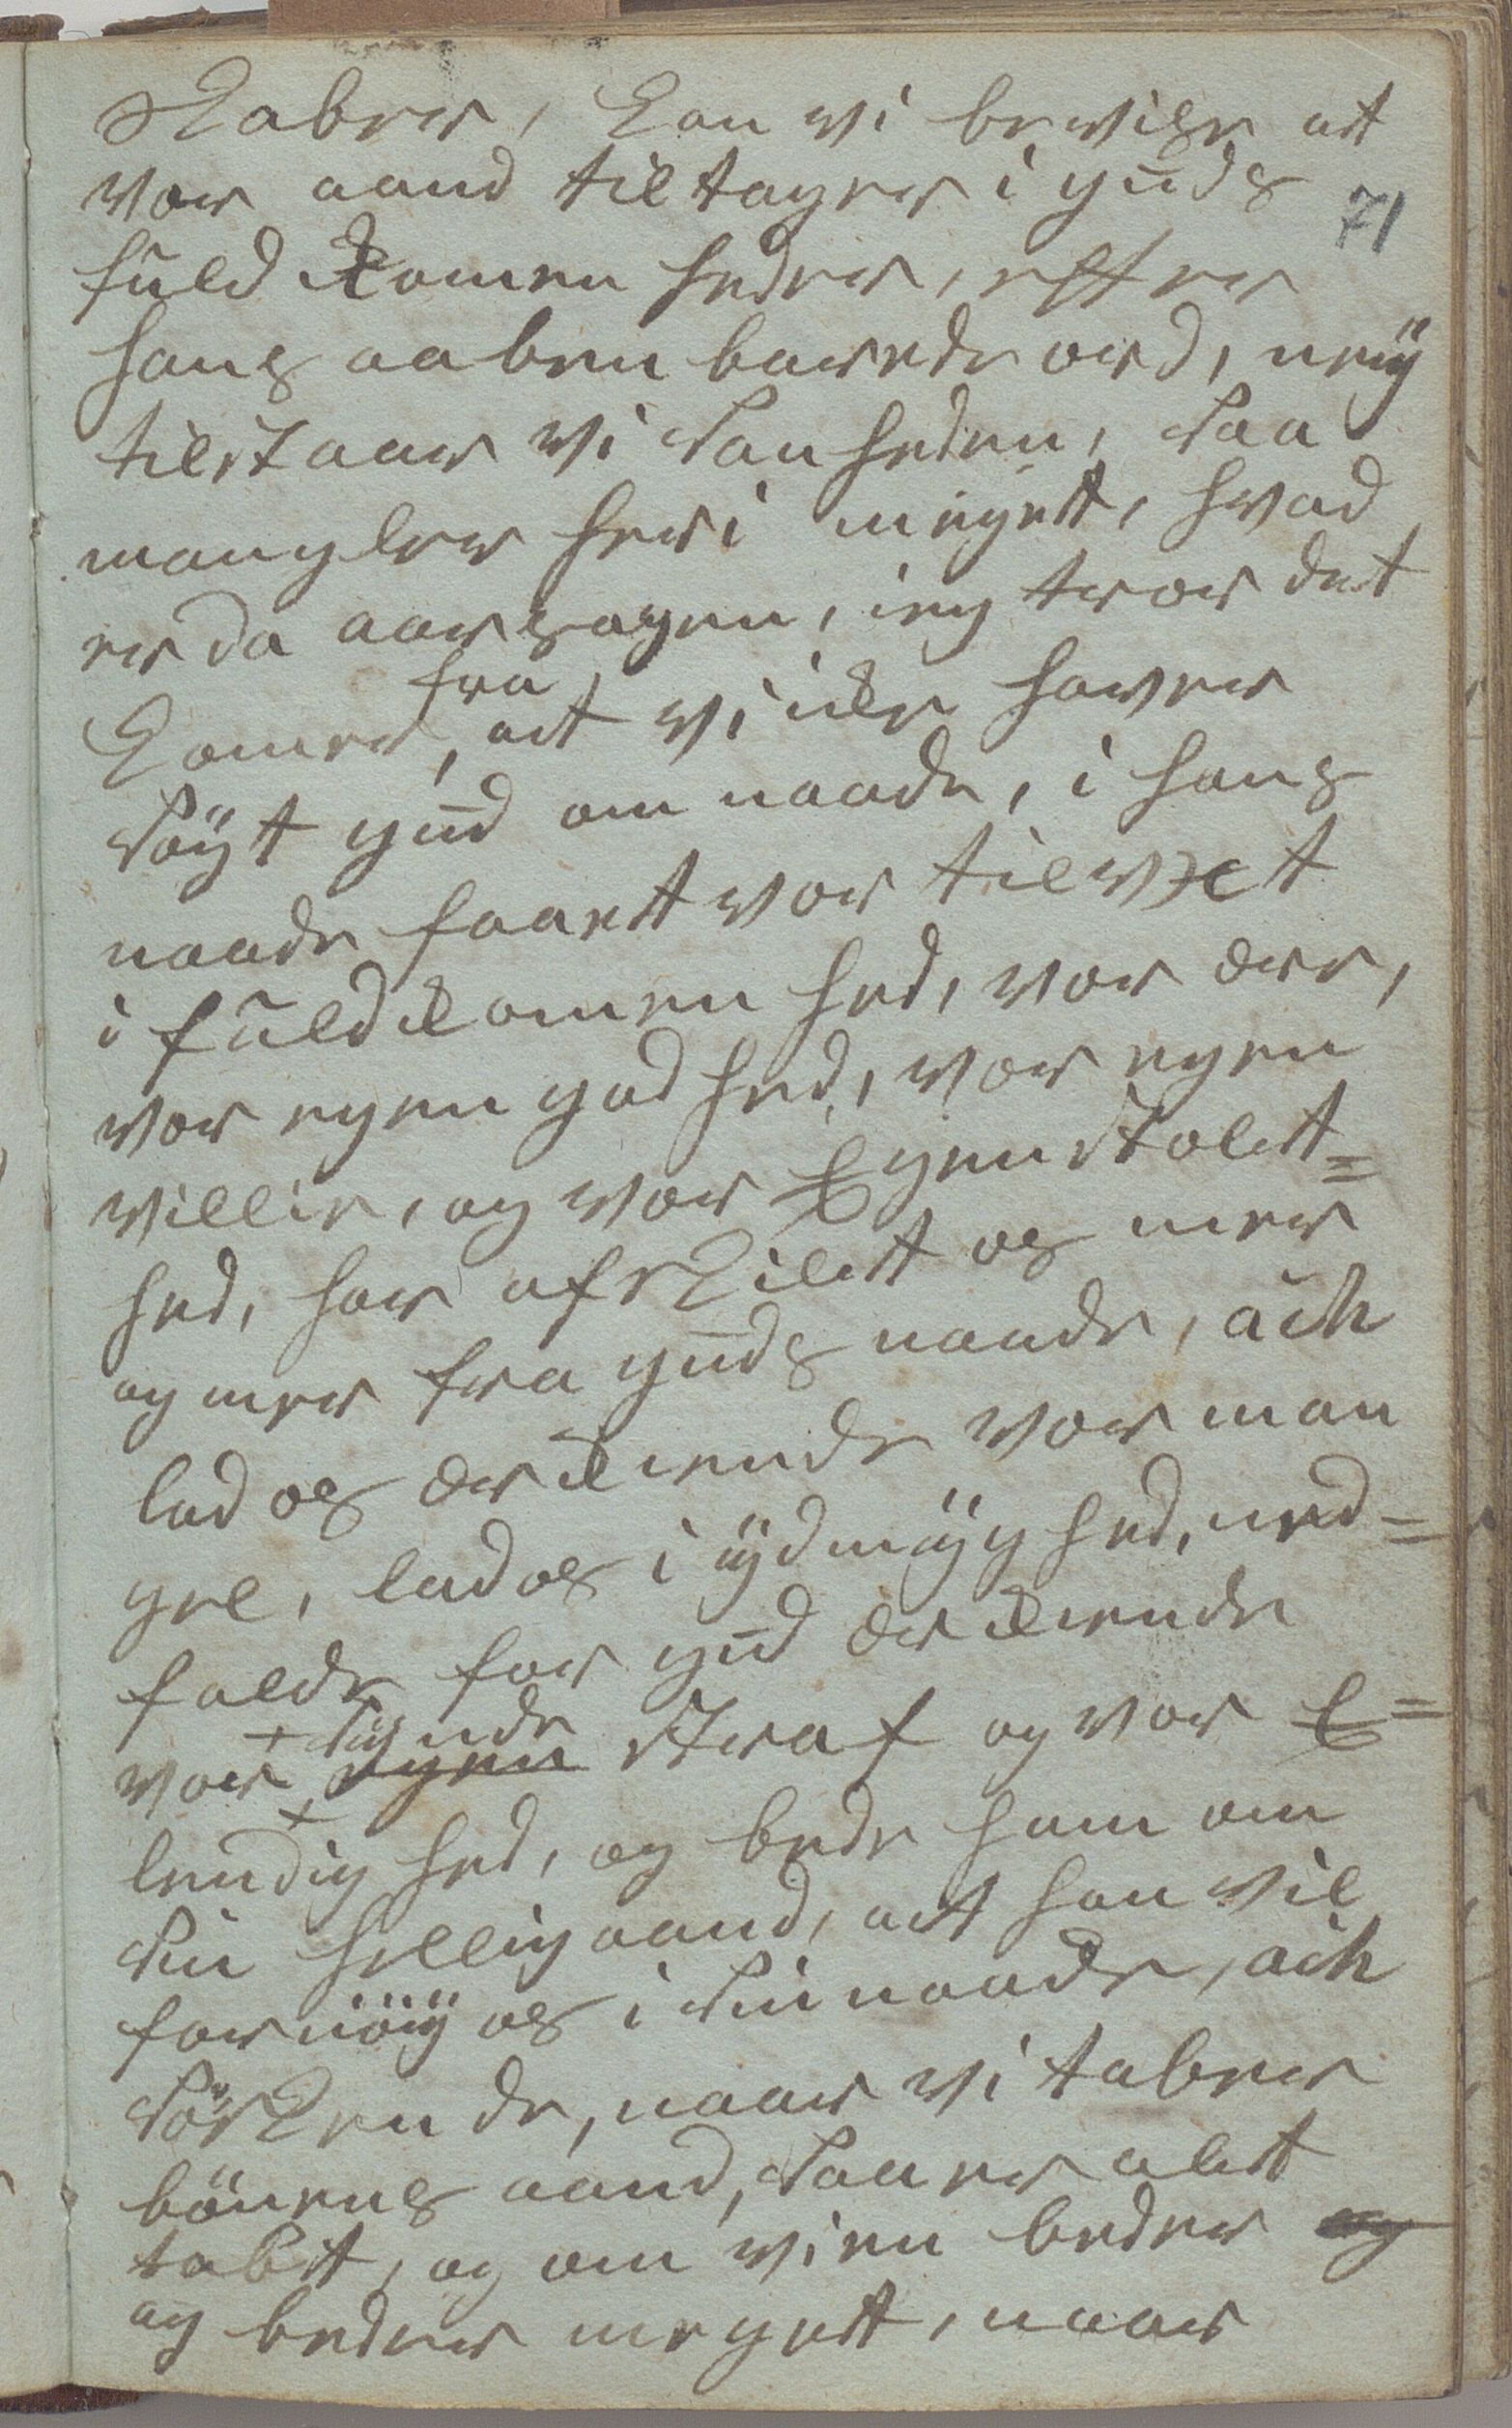 Skaber, kan vi bevise att
vor aand tiltager i guds
71
fuldkomen heder, effter
hans aabenbarede ord, neÿ
tilstaar vi Sanheden, Saa
mangler heri meget, hvad
er da aarsagen, ieg tror det
fra
komer, att vi icke haver
Söÿt gud om naade, i hans
naade faaett vor tilvext
i fuldkomenhed, vor ære,
vor egen godhed, vor egen
villie, og vor Egen stolt=
hed, har afskilt os mer
og mer fra guds naade, ach
lad os erkiende vor man
gel, lad os i ÿdmÿghed, ned=
falde for gud erkiende
Sÿnde
vor egen straf og vor E=
lendighed, og bede ham om
Sin hellig aand, att han vil
fornöÿ os i Sin naade, ach
Södskende, naar vi taber
bönens aand, Saa er alt
tabt, og om vi en beder og
og beder meget, naar